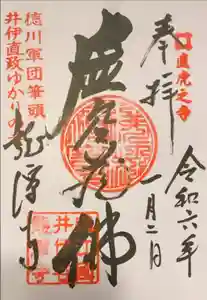 直虎之寺
奉拝
令和六年
一月二日
虚空蔵佛
徳川軍団筆頭
井伊直政ゆかりの
龍潭寺
井伊谷
龍潭寺